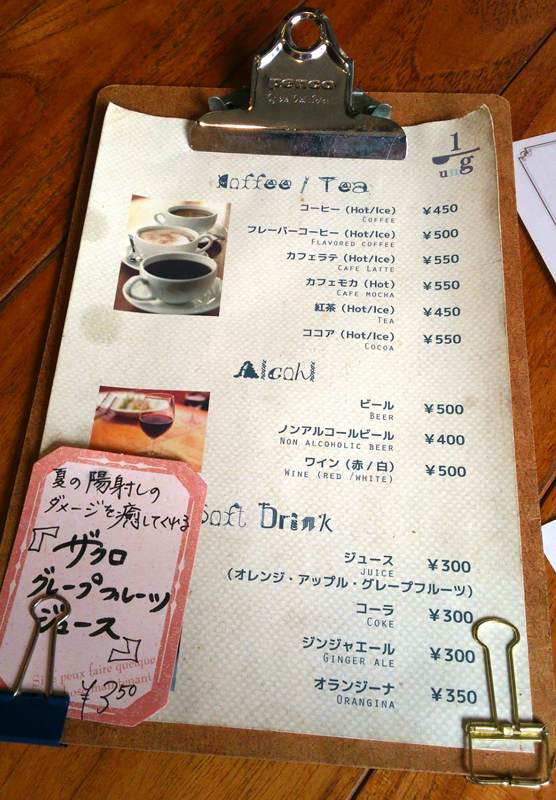 penco
1
ung
Coffee / Tea
コーヒー (Hot/Ice) ¥450
COFFEE
フレーバーコーヒー (Hot/Ice) ¥500
FLAVORED COFFEE
カフェラテ (Hot/Ice) ¥550
CAFE LATTE
カフェモカ (Hot) ¥550
CAFE MOCHA
紅茶 (Hot/Ice) ¥450
TEA
ココア (Hot/Ice) ¥550
COCOA
Alcohl
ビール ¥500
BEER
ノンアルコールビール ¥400
NON ALCOHOLIC BEER
ワイン (赤/白) ¥500
WINE (RED /WHITE)
Soft Drink
ジュース ¥300
JUICE
(オレンジ・アップル・グレープフルーツ)
コーラ ¥300
COKE
ジンジャエール ¥300
GINGER ALE
オランジーナ ¥350
ORANGINA
夏の陽射しの
ダメージを癒してくれる
『ザクロ
グレープフルーツ
ジュース』
peux faire quelque
maintenant
¥350